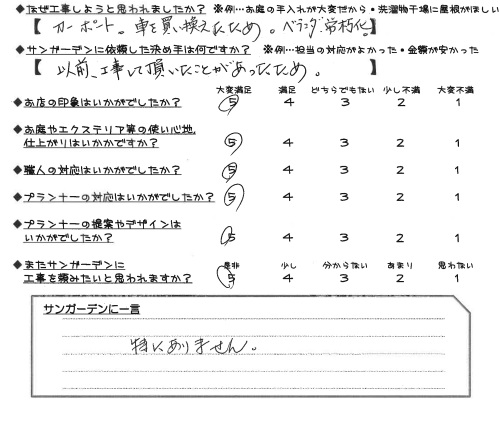 ◆なぜ工事しようと思われましたか？ ※例…お庭の手入れが大変だから・洗濯物干場に屋根がほしい
【 カーポート。車を買い換えたため。ベランダ 老朽化 】
◆サンガーデンに依頼した決め手は何ですか？ ※例…担当の対応がよかった・金額が安かった
【 以前、工事して頂いたことがあったため。 】
大変満足 満足 どちらでもない 少し不満 大変不満
◆お店の印象はいかがでしたか？ 5 4 3 2 1
◆お庭やエクステリア等の使い心地、
仕上がりはいかかですか？ 5 4 3 2 1
◆職人の対応はいかがでしたか？ 5 4 3 2 1
◆プランナーの対応はいかがでしたか？ 5 4 3 2 1
◆プランナーの提案やデザインは
いかがでしたか？ 5 4 3 2 1
◆またサンガーデンに 是非 少し 分からない あまり 思わない
工事を頼みたいと思われますか？ 5 4 3 2 1
サンガーデンに一言
特にありません。